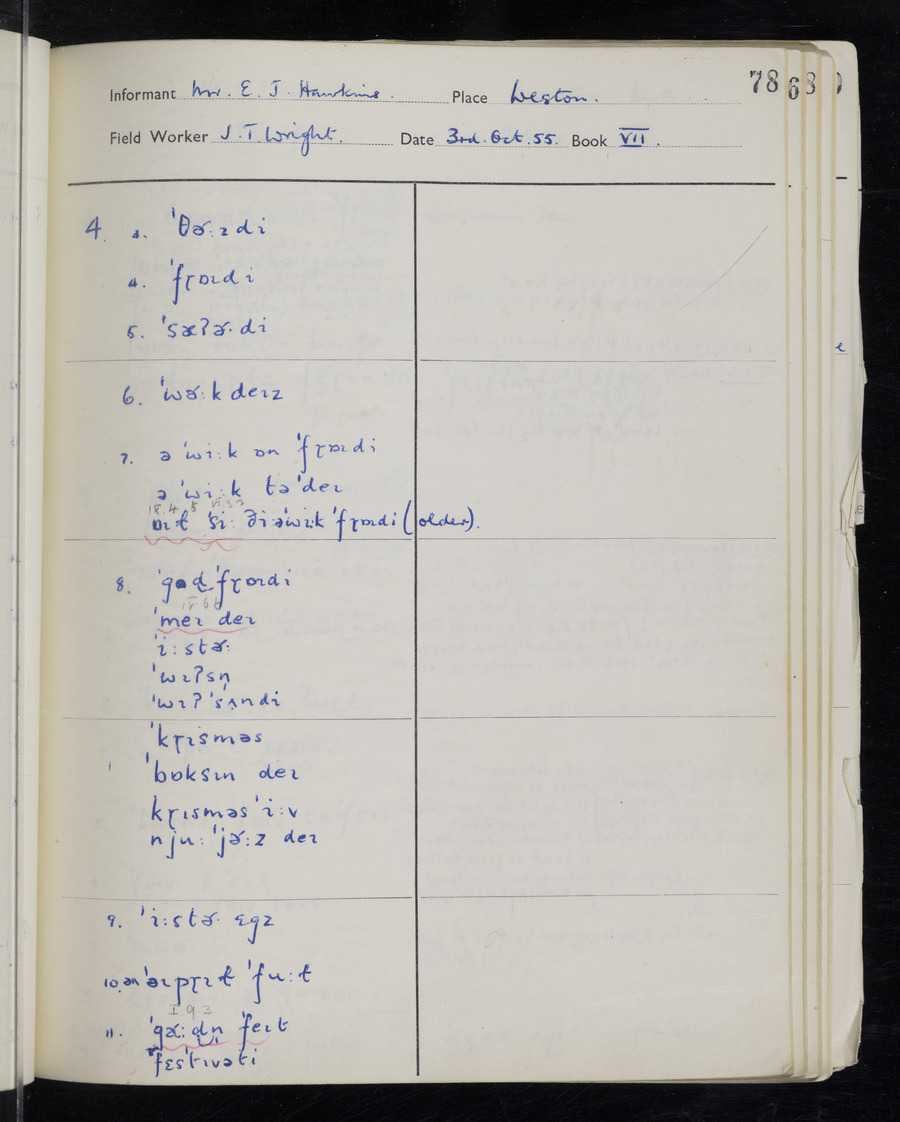 78
Informant Mr. E. J. Hawkins. Place Weston.
Field Worker J. T. Wright. Date 3rd. Oct. 55. Book VII.
4. 3. ˈθɚ:zdi
4. ˈfɽɒɪdi
5. ˈsæʔɚ·di
6. ˈwɚ:kdeɪz
7. ə ˈwi:k ɒn ˈfɽɒɪdi
ə ˈwi:k tə ˈdeɪ
ˈsi: ði:əˈwi:k ˈfɽɒɪdi (older).
8. ˈfɽɒɪdi
ˈmeɪ deɪ
ˈi:stɚ:
ˈwɪʔsn̩
ˈwɪʔ ˈsʌndi
ˈkɽɪsməs
ˈbɒksɪn deɪ
kɽɪsməs ˈi:v
nju: ˈjɚ:z deɪ
9. ˈi:stɚ· ɛgz
10. ən ˈəɪpɽɪɫ ˈfu:ɫ
I 9.3
11. ˈfeɪt
ˈfɛstɪvəti